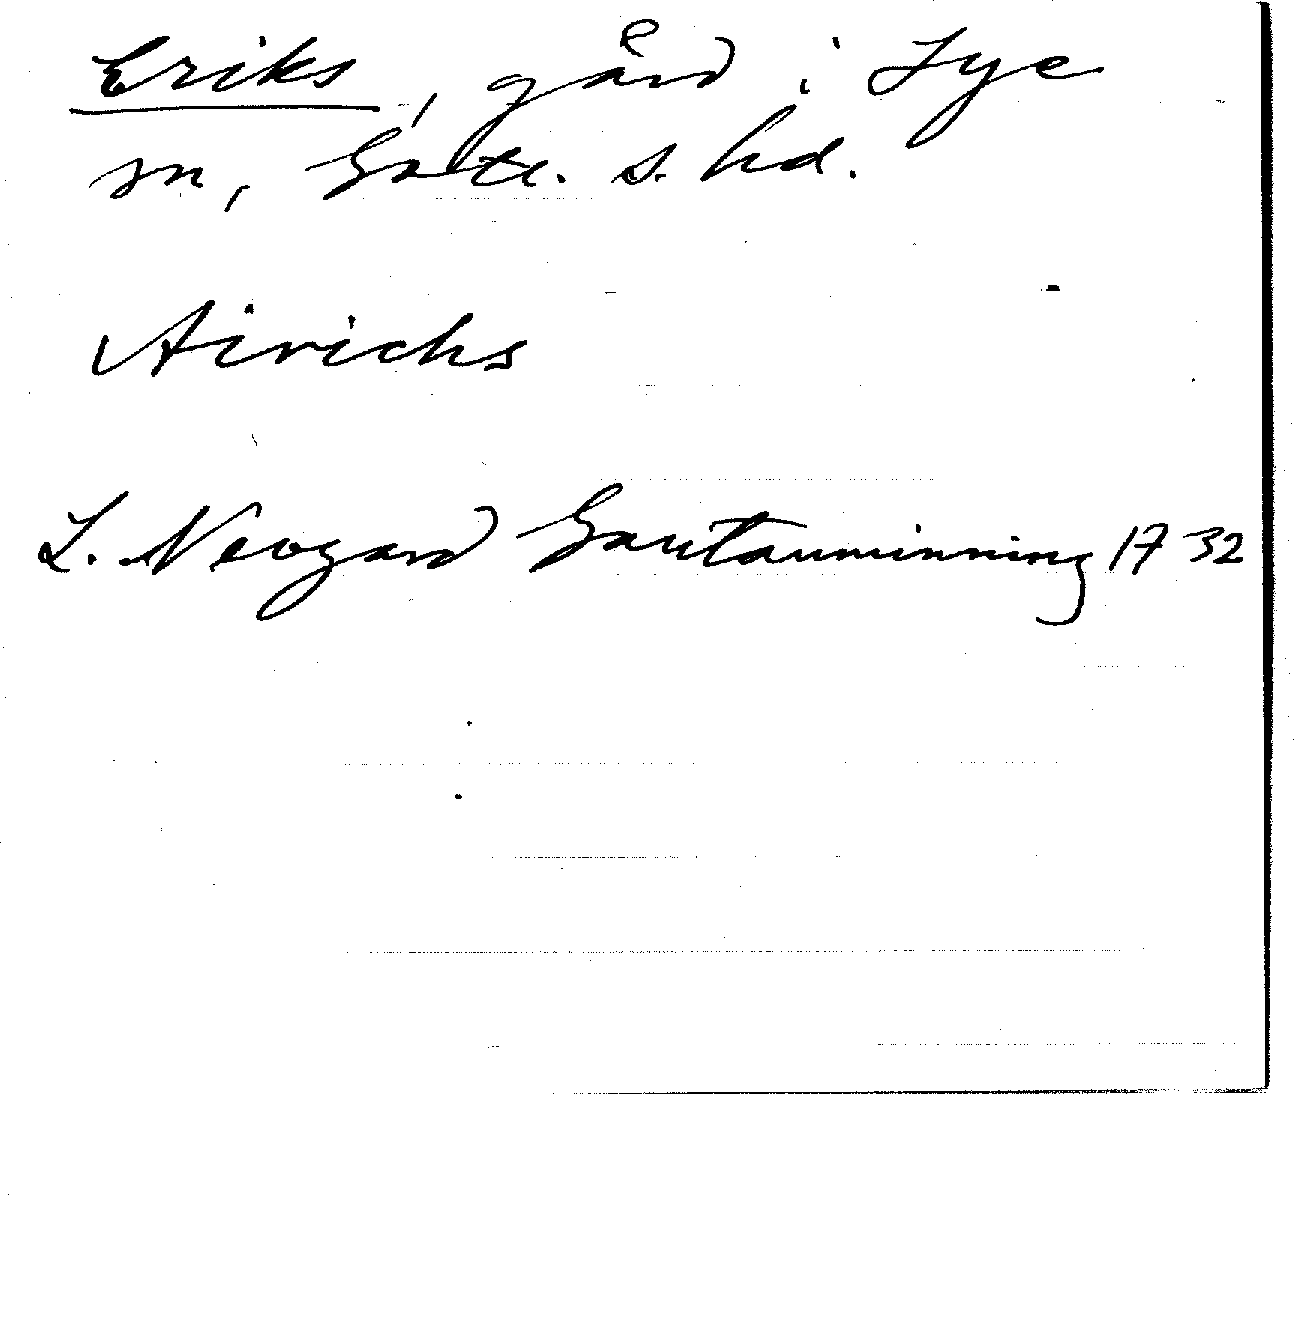 Eriks, gård i Lye
sn, Gotl. s. hd.
Airichs
L. Neogard Gautauminning 1732